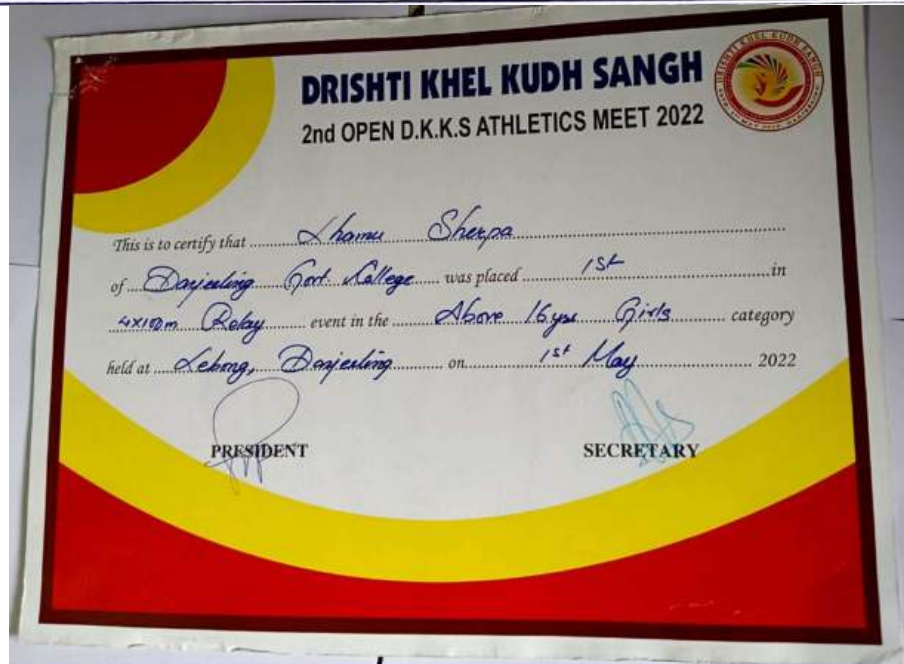 DRISHTI KHEL KUDH SANGH
2nd OPEN D.K.K.S ATHLETICS MEET 2022
DRISHTI KHEL KUDH SANGH
This is to certify that Lhamu Sherpa
of Darjeeling Govt. College was placed 1st in
4x100m Relay event in the Above 16 yrs Girls category
held at Lebong, Darjeeling on 1st May 2022
PRESIDENT
SECRETARY